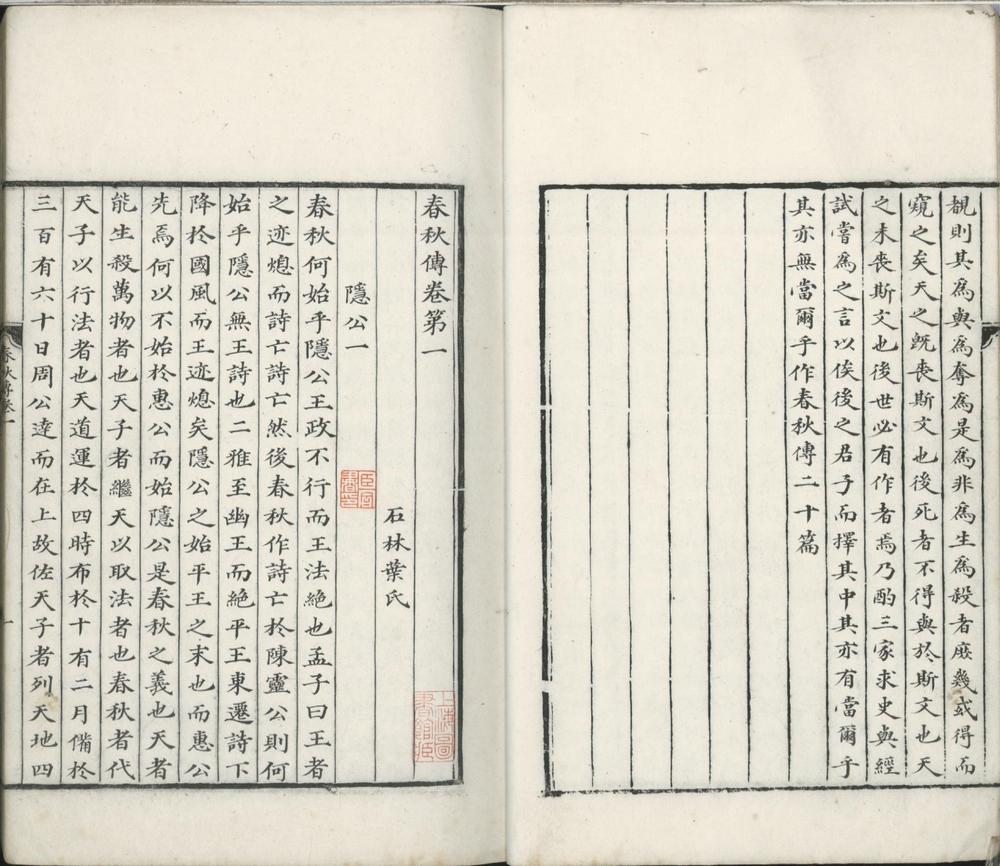 覩則其爲與爲奪爲是爲非爲生爲殺者庶幾或得而
窺之矣天之既喪斯文也後死者不得與於斯文也天
之未喪斯文也後世必有作者焉乃酌三家求史與經
試嘗爲之言以俟後之君子而擇其中其亦有當爾乎
其亦無當爾乎作春秋傳二十篇
春秋傳卷第一
石林葉氏
隱公一
春秋何始乎隱公王政不行而王法絶也孟子曰王者
之迹熄而詩亡詩亡然後春秋作詩亡於陳靈公則何
始乎隱公無王詩也二雅至幽王而絶平王東遷詩下
降於國風而王迹熄矣隱公之始平王之末也而惠公
先焉何以不始於惠公而始隱公是春秋之義也天者
能生殺萬物者也天子者繼天以取法者也春秋者代
天子以行法者也天道運於四時布於十有二月備於
三百有六十日周公達而在上故佐天子者列天地四
春秋傳卷一
一
上海圖書館藏